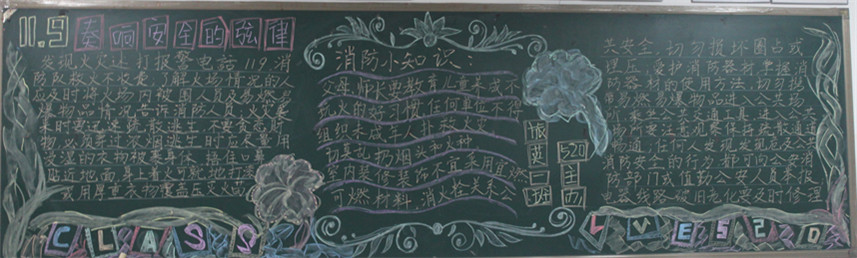 11.9 奏响安全的旋律
发现火灾迅速打报警电话119.消
防队救火不收费.了解火场情况的人
及时将火场内被困人员及易燃易
爆物品情况告诉消防人员火灾袭
来时要迅速疏散逃生不要贪恋财
物,必须穿过浓烟逃生时应尽量用
浸湿的衣物被裹身体,捂住口鼻
贴近地面.身上着火可就地打滚
或用厚重衣物覆盖压灭火苗
消防小知识:
父母.师长要教育儿童养成不
玩火的好习惯.任何单位不得
组织未成年人扑救火灾.
切莫乱扔烟头和火种
室内装修装饰不宜采用易燃
可燃材料.消火栓关系公
共安全,切勿损坏圈占或
埋压.爱护消防器材,掌握消
防器材的使用方法,切勿携
带易燃易爆物品进入公共场
所乘坐公共交通工具.进入公共
场所要注意观察保持疏散通道
畅通.任何人发现危及公共
消防安全的行为都可向公安消
防部门或值勤公安人员举报
电器线路破旧老化要及时修理
振英一班
520
CLASS
LVE520